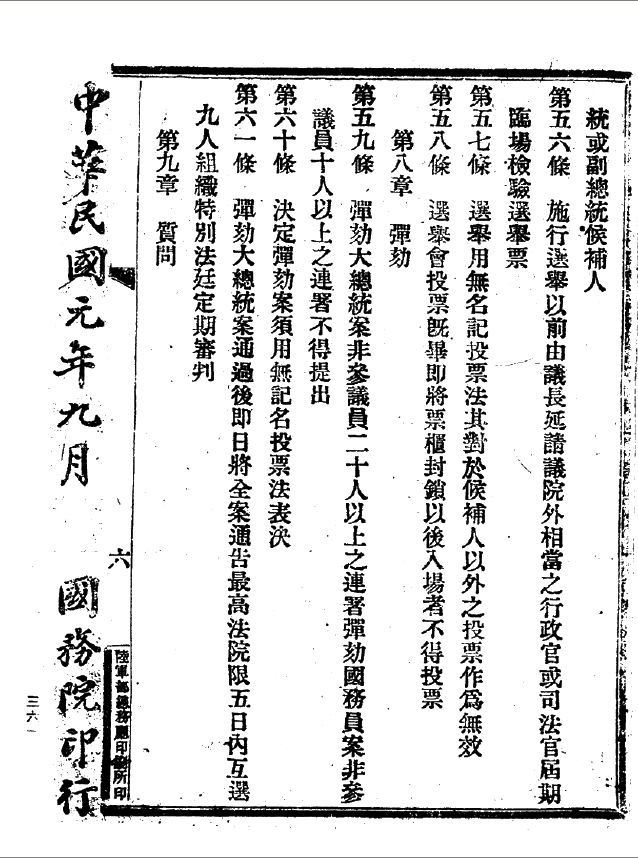 統或副總統候補人
第五六條　施行選舉以前由議長延請議院外相當之行政官或司法官屆期
臨場檢驗選舉票
第五七條　選舉用無名記投票法其對於候補人以外之投票作爲無效
第五八條　選舉會投票旣畢即將票櫃封鎖以後入場者不得投票
第八章　彈劾
第五九條　彈劾大總統案非參議員二十人以上之連署彈劾國務員案非參
議員十人以上之連署不得提出
第六十條　決定彈劾案須用無記名投票法表決
第六一條　彈劾大總統案通過後即日將全案通告最高法院限五日內互選
九人組織特別法廷定期審判
第九章　質問
六
陸軍部總務廳印刷所印
中華民國元年九月　國務院印行
三六